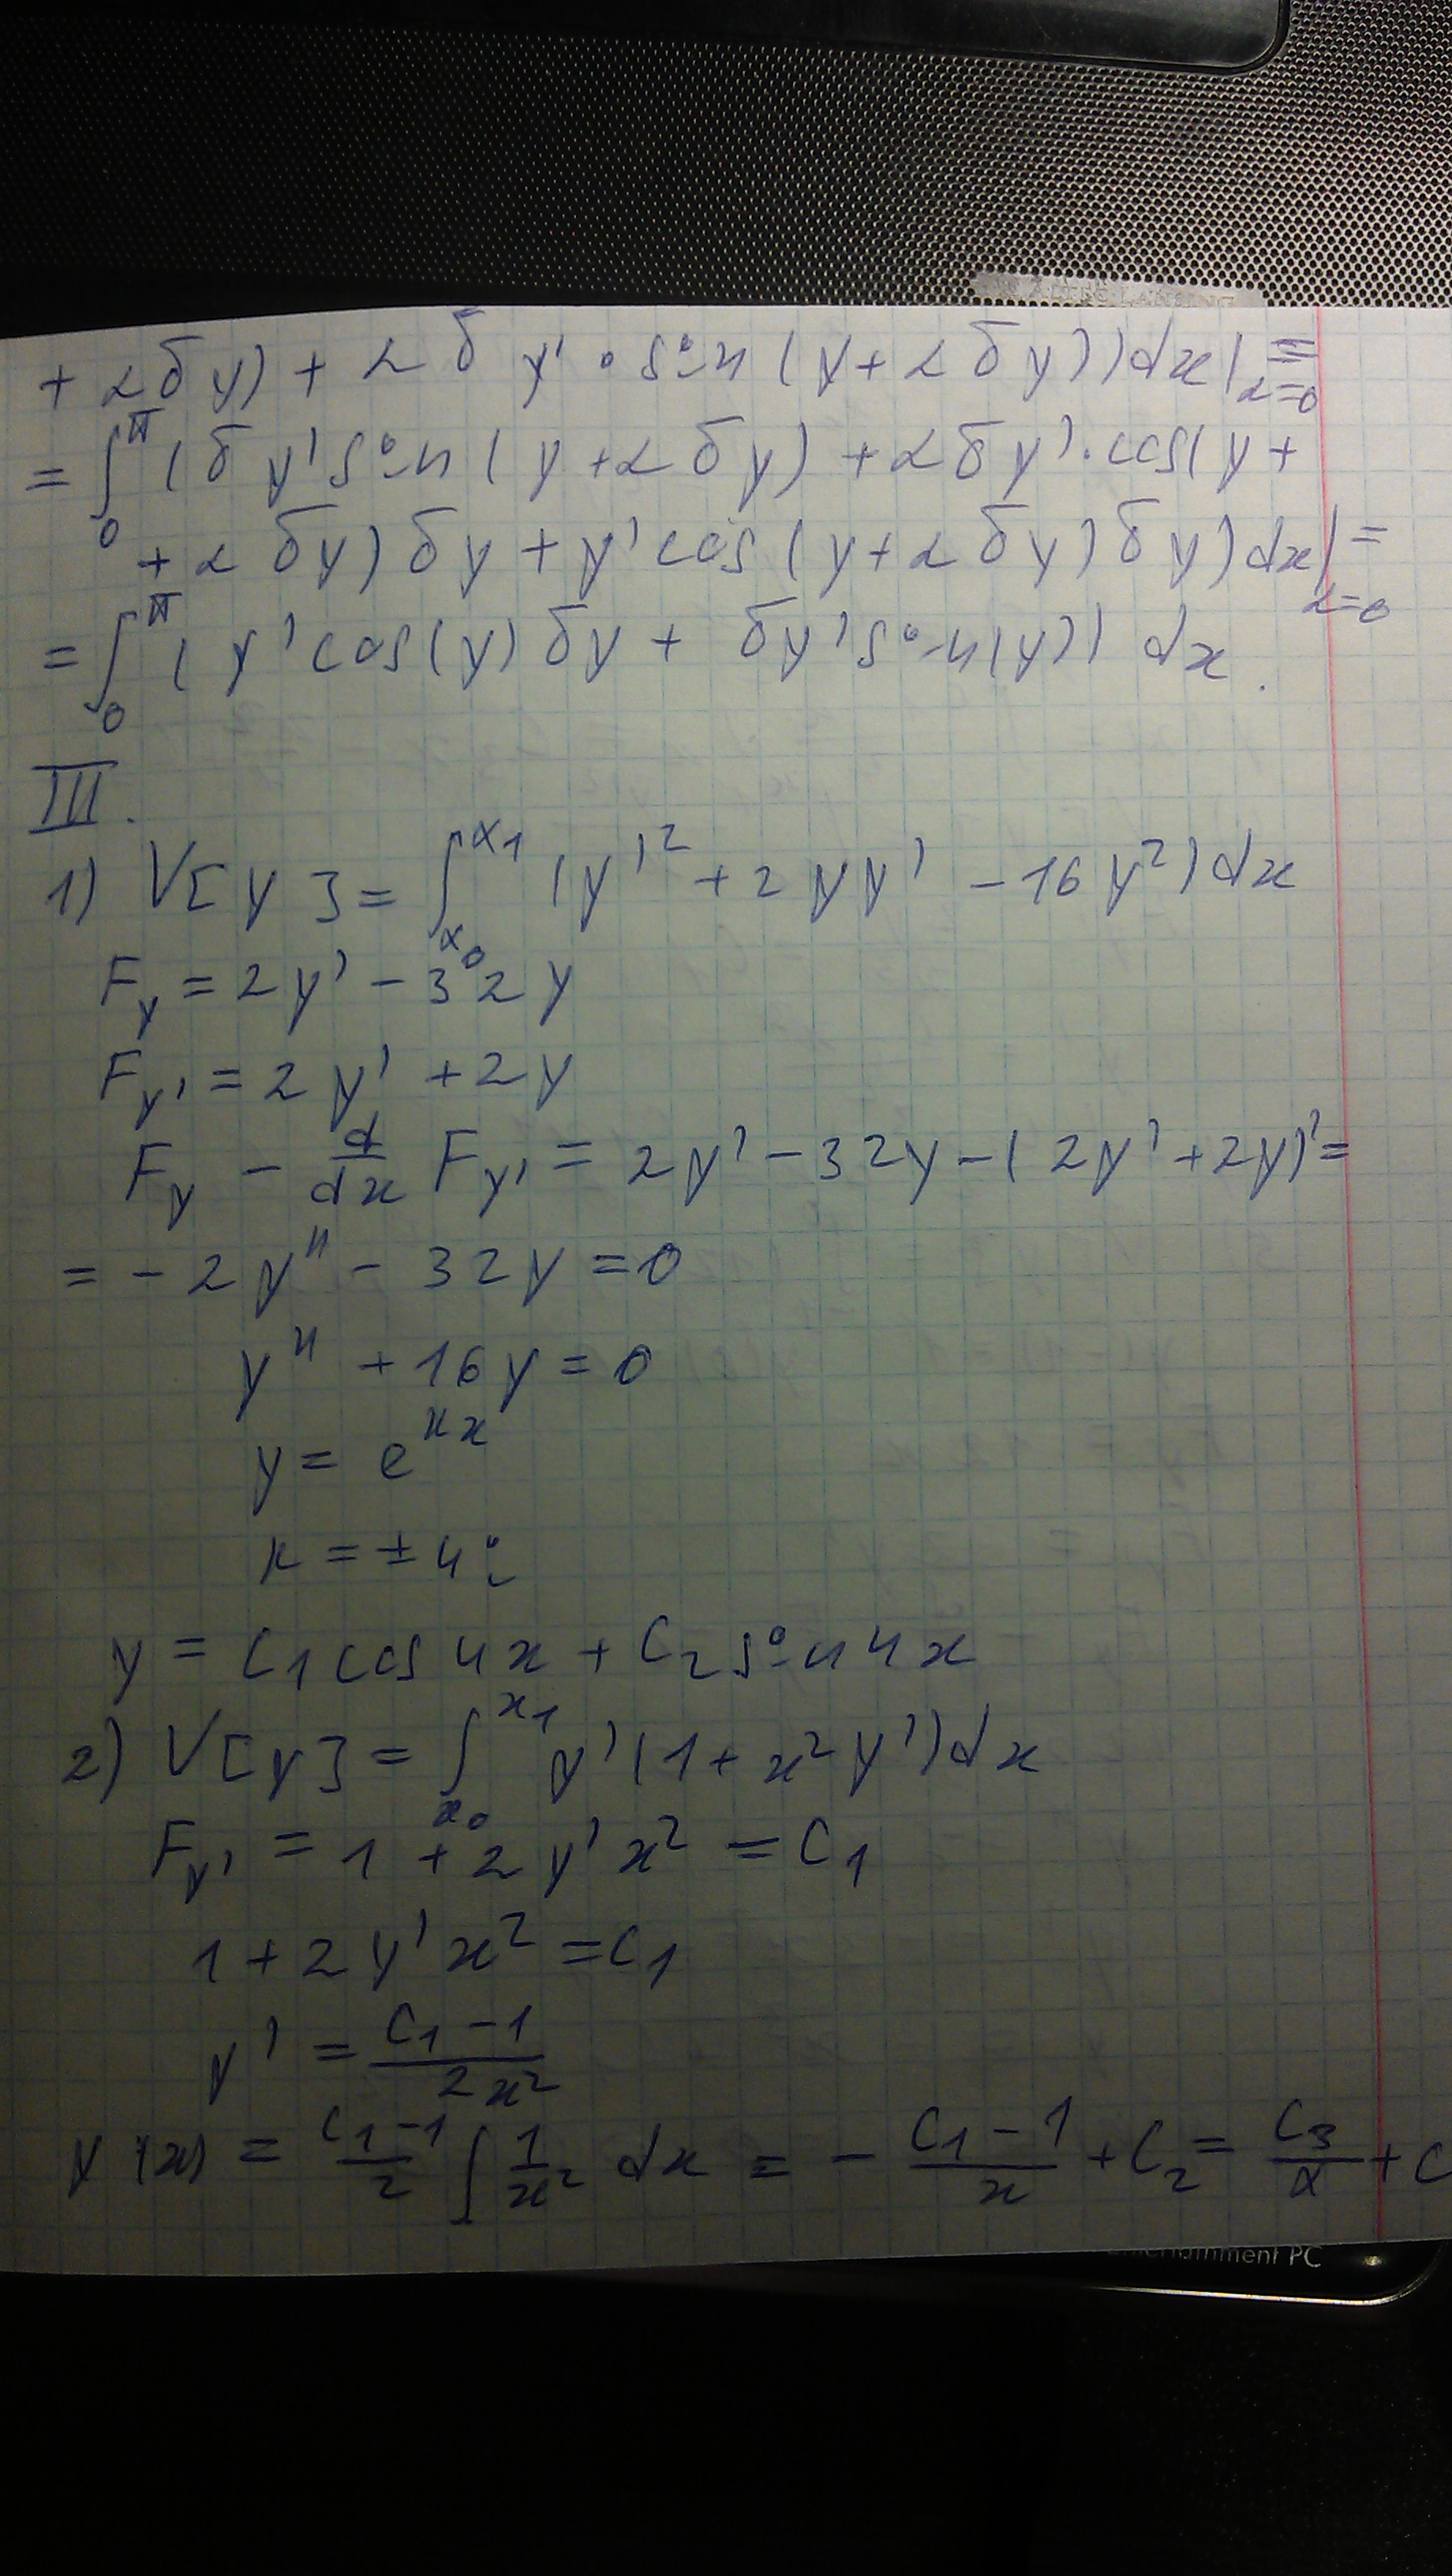 + αδy) + αδy'·sin(y+αδy))dx|α=0 =
= ∫₀^π (δy' sin(y+αδy) + αδy'·cos(y+
+ αδy)δy + y'cos(y+αδy)δy)dx|α=0 =
= ∫₀^π (y'cos(y)δy + δy'sin(y)) dx.
III.
1) V[y] = ∫_{x₀}^{x₁} (y'² + 2yy' - 16y²)dx
F_y = 2y' - 32y
F_y' = 2y' + 2y
F_y - d/dx F_y' = 2y' - 32y - (2y' + 2y)' =
= -2y'' - 32y = 0
y'' + 16y = 0
y = e^{kx}
k = ±4i
y = C₁cos4x + C₂sin4x
2) V[y] = ∫_{x₀}^{x₁} y'(1 + x²y')dx
F_y' = 1 + 2y'x² = C₁
1 + 2y'x² = C₁
y' = (C₁ - 1)/(2x²)
y(x) = (C₁-1)/2 ∫ 1/x² dx = - (C₁-1)/x + C₂ = C₃/x + C
ment PC